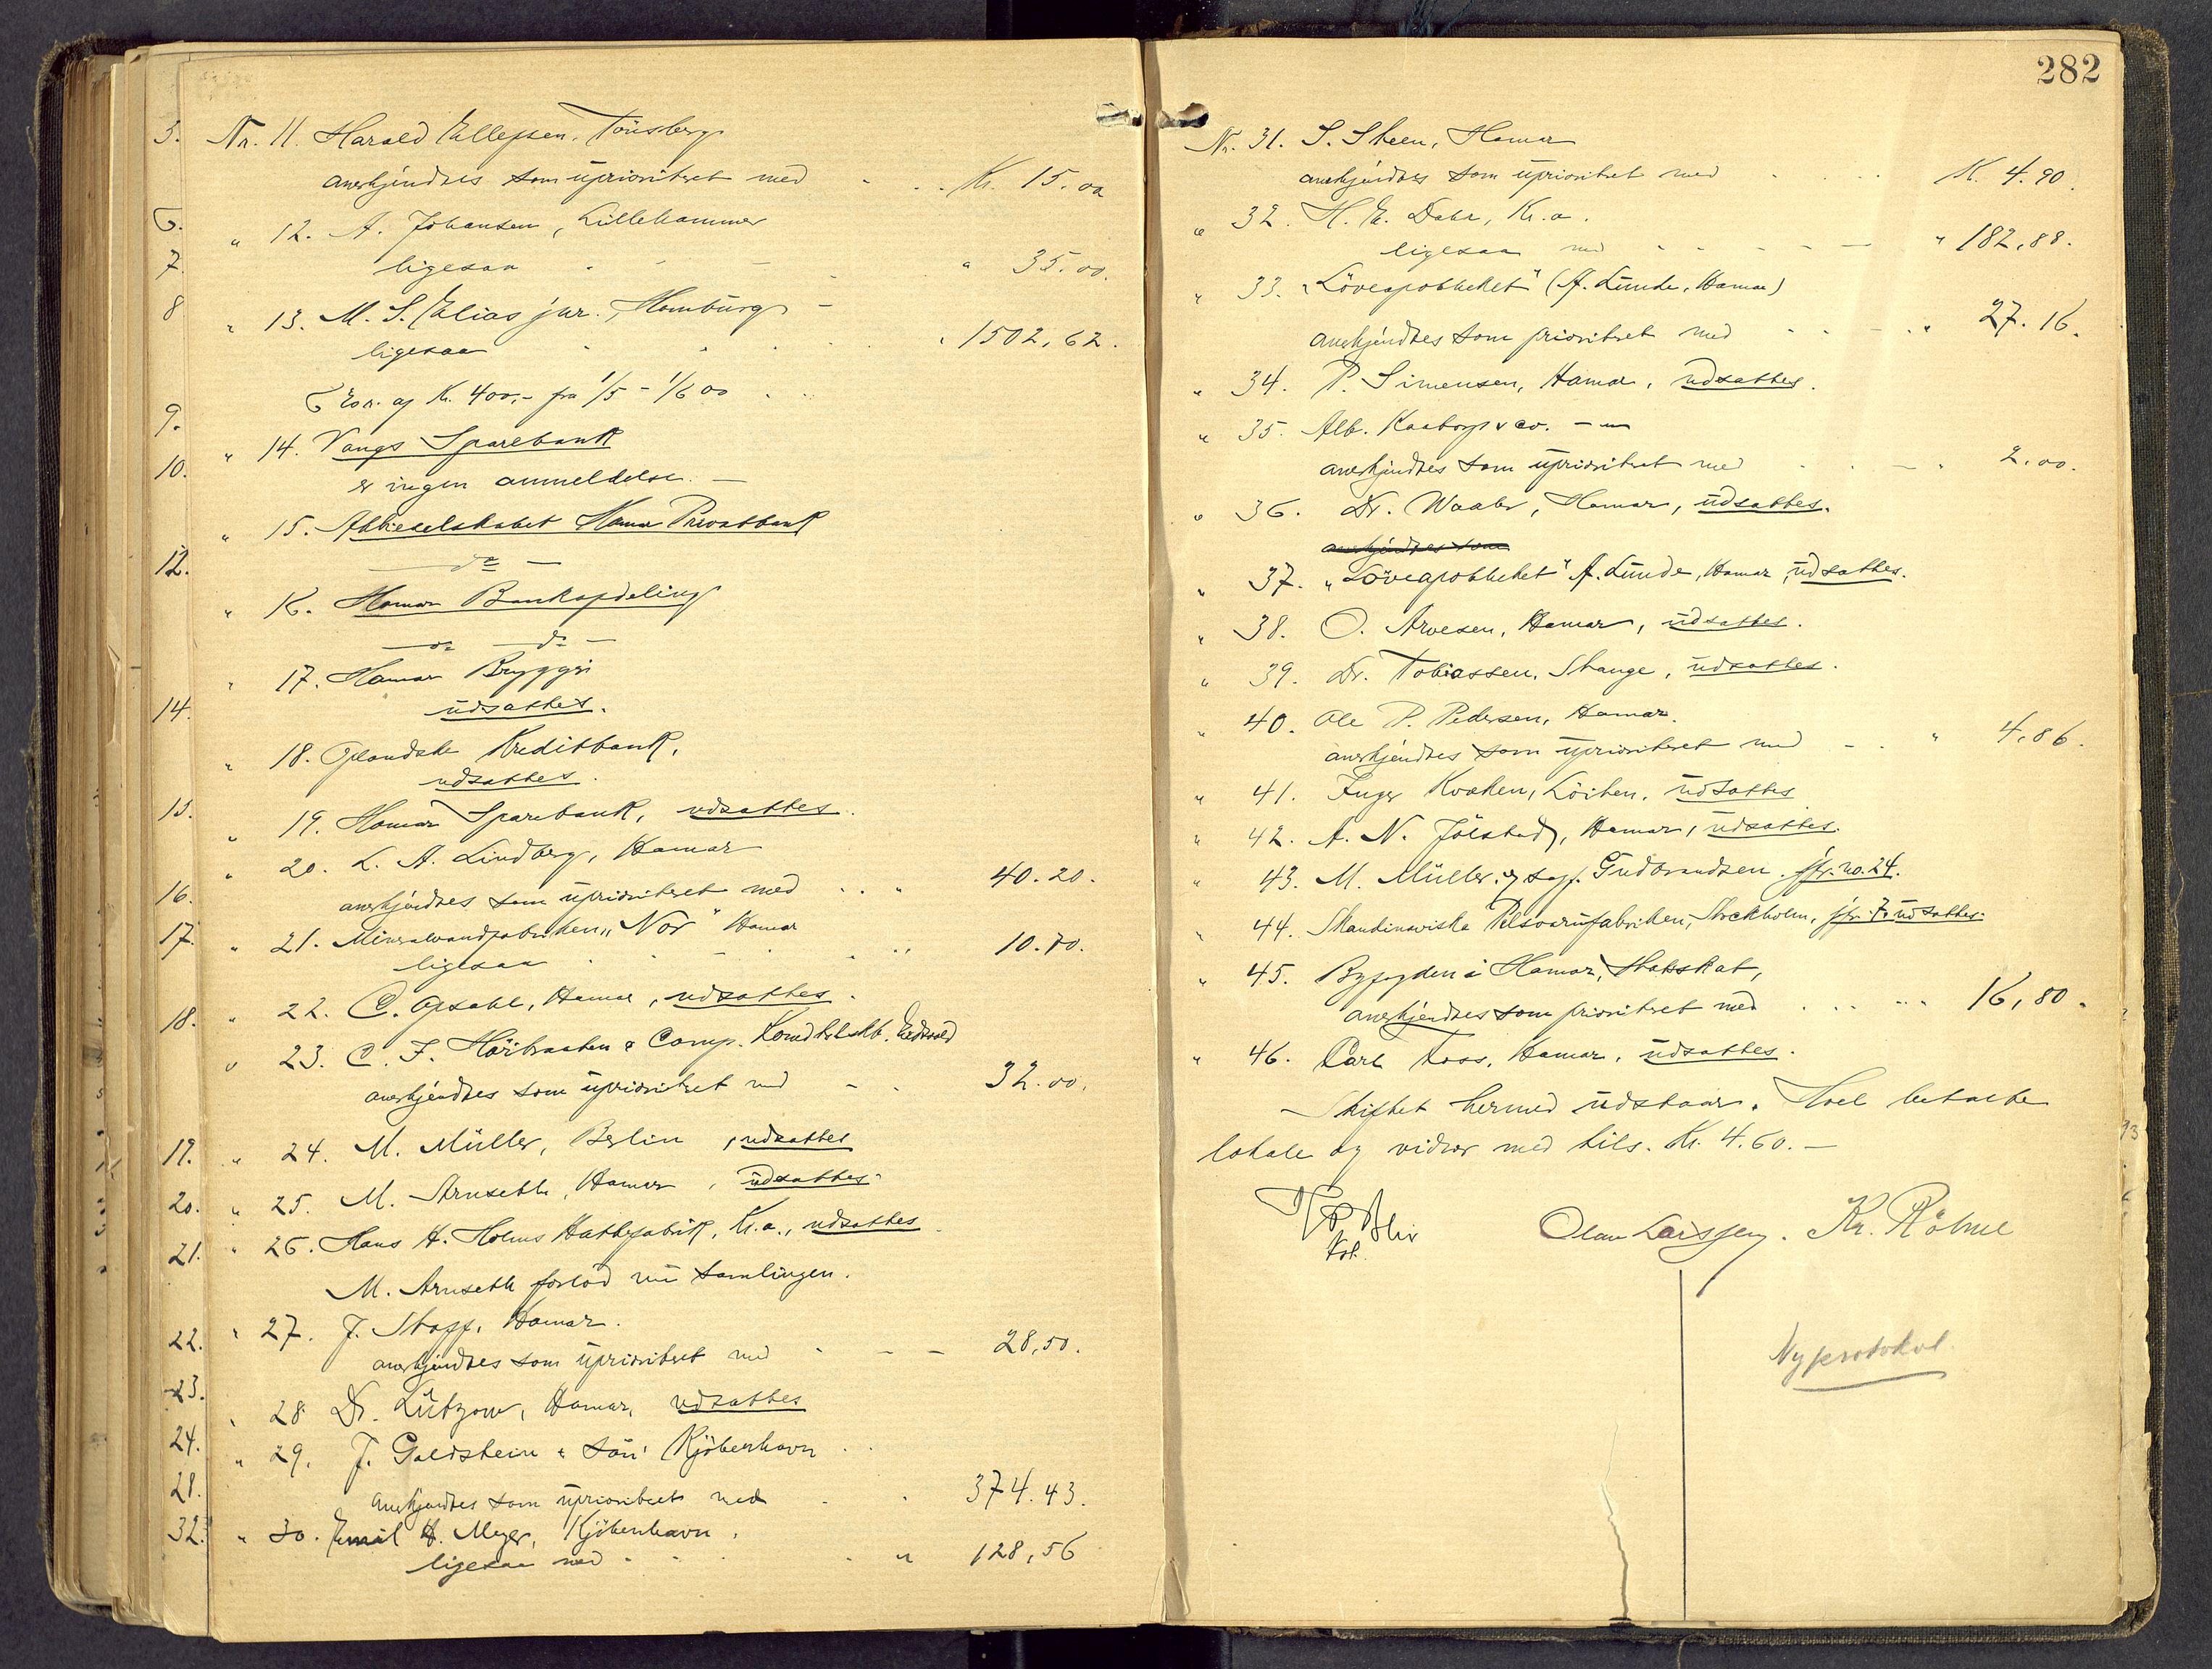 Nr. 11. Harald Ellefsen, Tönsberg
anerkjendtes som uprioritert med - - Kr. 15.00
" 12. A. Johansen, Lillehammer
ligesaa " 35.00.
" 13. M. S. Elias jur., Hamburg -
ligesaa " 1502,62.
af Kr. 400,- fra 1/5 - 1/6 00
" 14. Vangs Sparebank
er ingen anmeldelse. -
" 15. Aktieselskabet Hamar Privatbank
— do —
" 16. Hamar Bankafdeling
— do —
" 17. Hamar Bryggeri
udsattes.
" 18. Oplandske Kreditbank,
udsattes.
" 19. Hamar Sparebank, udsattes.
" 20. L. A. Lindberg, Hamar
anerkjendtes som uprioriteret med " 40.20.
" 21. Mineralvandfabriken "Nor" Hamar
ligesaa " 10.70.
" 22. C. Opsahl, Hamar, udsattes.
" 23. C. F. Höibraaten & Comp. Eidsvold
anerkjendtes som uprioritret med - - 32.00.
" 24. M. Müller, Berlin, udsattes
" 25. M. Arnseth, Hamar, udsattes.
" 26. Hans H. Holms Hattefabrik, Kr.a., udsattes
M. Arnseth forlod nu samlingen.
" 27. J. Stoff, Hamar.
anerkjendtes som uprioritert med - - 28,50.
" 28 Dr. Lützow, Hamar, udsattes
" 29. J. Goldstein & Sön Kjöbenhavn
anerkjendtes som uprioriteret med 374.43.
" 30. Emil H. Meyer, Kjöbenhavn.
ligesaa med " 128,56
3.
6.
7.
8
9.
10.
12.
14.
15.
16.
17.
18.
19.
20.
21.
22.
23.
24.
28.
32.
282
Nr. 31. S. Skeen, Hamar
anerkjendtes som uprioritret med K. 4.90.
" 32. H. E. Dahr, Kr.a.
ligesaa med " 182,88.
" 33. "Löveapotheket" (A. Lunde, Hamar)
anerkjendtes som prioritret med " 27.16.
" 34. P. Simensen, Hamar, udsattes.
" 35. Alb. Kaaborg & Co. - " -
anerkjendtes som uprioritret med " 2.00.
" 36. Dr. Waaler, Hamar, udsattes.
anerkjendtes som
" 37. "Löveapotheket" A. Lunde, Hamar, udsattes.
" 38. O. Arvesen, Hamar, udsattes.
" 39. Dr. Tobiassen, Stange, udsattes.
" 40. Ole P. Pedersen, Hamar.
anerkjendtes som uprioriteret med - " 4,86.
" 41. Inger Kvaken, Löiten, udsattes
" 42. A. N. Jölstad, Hamar, udsattes.
" 43. M. Müller. v. sagf. Gudbrandsen. jfr. no. 24.
" 44. Skandinaviska Pelsvarufabriken, Stockholm, jfr. 7. udsattes.
" 45. Byfogden i Hamar, statsskat,
anerkjendtes som prioritret med " 16,80.
" 46. Carl Foss, Hamar, udsattes.
Skiftet hermed udstaar. Hoel betalte
lokale og vidner med tils. Kr. 4.60. -
Olaus Larssen. Kr. Röhne
Ny protokol